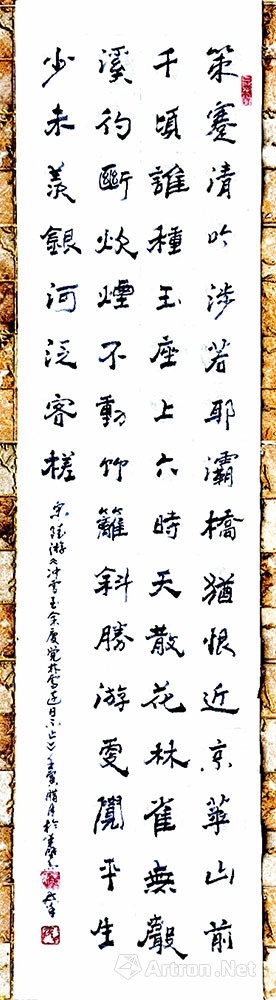 策蹇清吟涉若耶灞橋猶恨近京華山前
千頃誰種玉座上六時天散花林雀無聲
溪彴斷炊煙不動竹籬斜勝游更覺平生
少未羨銀河泛客槎
宋陸游《冲雪至余慶覺林雪連日不止》壬寅腊月於
Artron.Net